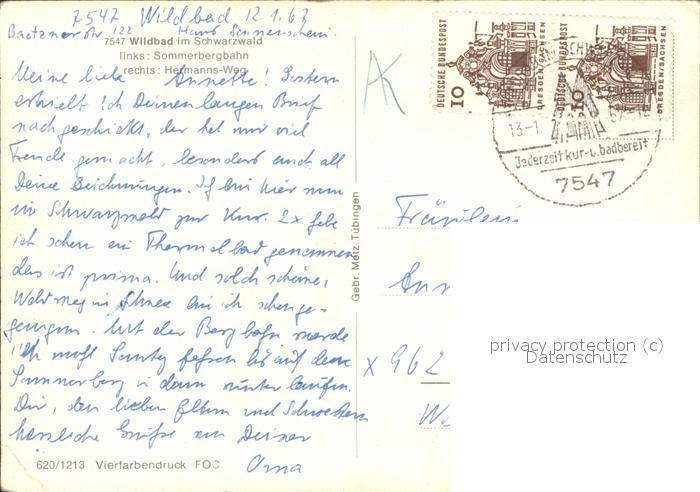 7547 Wildbad 12.1.67
Baetznerstr 122 Haus Sonnenschein.
7547 Wildbad im Schwarzwald
links: Sommerbergbahn
rechts: Hermanns-Weg
Meine liebe Annette! Gestern
erhielt ich Deinen langen Brief
nachgeschickt, der hat mir viel
Freude gemacht, besonders auch all
Deine Zeichnungen. Ich bin hier nun
im Schwarzwald zur Kur. 2x habe
ich schon ein Thermalbad genommen
das ist prima. Und solch schöne
Waldwege in Schnee bin ich schon ge-
gangen. Mit der Bergbahn werde
ich wohl Sonntag fahren bis auf den
Sommerberg u. dann runter laufen.
Dir, den lieben Eltern und Schwestern
herzliche Grüße von Deiner
Oma
620/1213 Vierfarbendruck FOC
Gebr. Metz, Tübingen
AK
DEUTSCHE BUNDESPOST
10
DRESDEN/SACHSEN
DEUTSCHE BUNDESPOST
10
DRESDEN/SACHSEN
13-1
Jederzeit kur- u. badbereit
7547
Fräulein
Ann
x 962
privacy protection (c)
Datenschutz